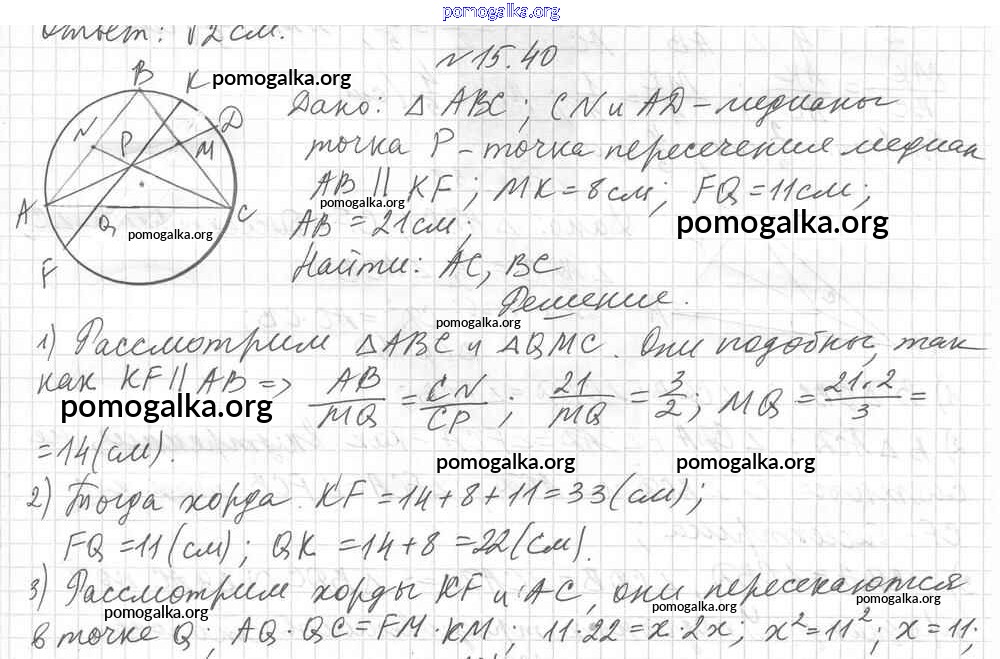 pomogalka.org
Ответ: √2 см.
№15.40
B K pomogalka.org
D
N P M
A C
Q pomogalka.org
F
Дано: △ ABC; CN и AD – медианы
точка P – точка пересечения медиан
AB ∥ KF; MK = 8 см; FQ = 11 см;
pomogalka.org
AB = 21 см; pomogalka.org
Найти: AC, BC
Решение.
pomogalka.org
1) Рассмотрим △ABC и △QMC. Они подобны, так
как KF ∥ AB => AB/MQ = CN/CP; 21/MQ = 3/2; MQ = 21·2/3 =
pomogalka.org
= 14 (см).
pomogalka.org pomogalka.org
2) Тогда хорда KF = 14 + 8 + 11 = 33 (см);
FQ = 11 (см); QK = 14 + 8 = 22 (см).
3) Рассмотрим хорды KF и AC, они пересекаются
pomogalka.org pomogalka.org pomogalka.org pomogalka.org
в точке Q; AQ · QC = FM · KM; 11·22 = x·2x; x² = 11²; x = 11;